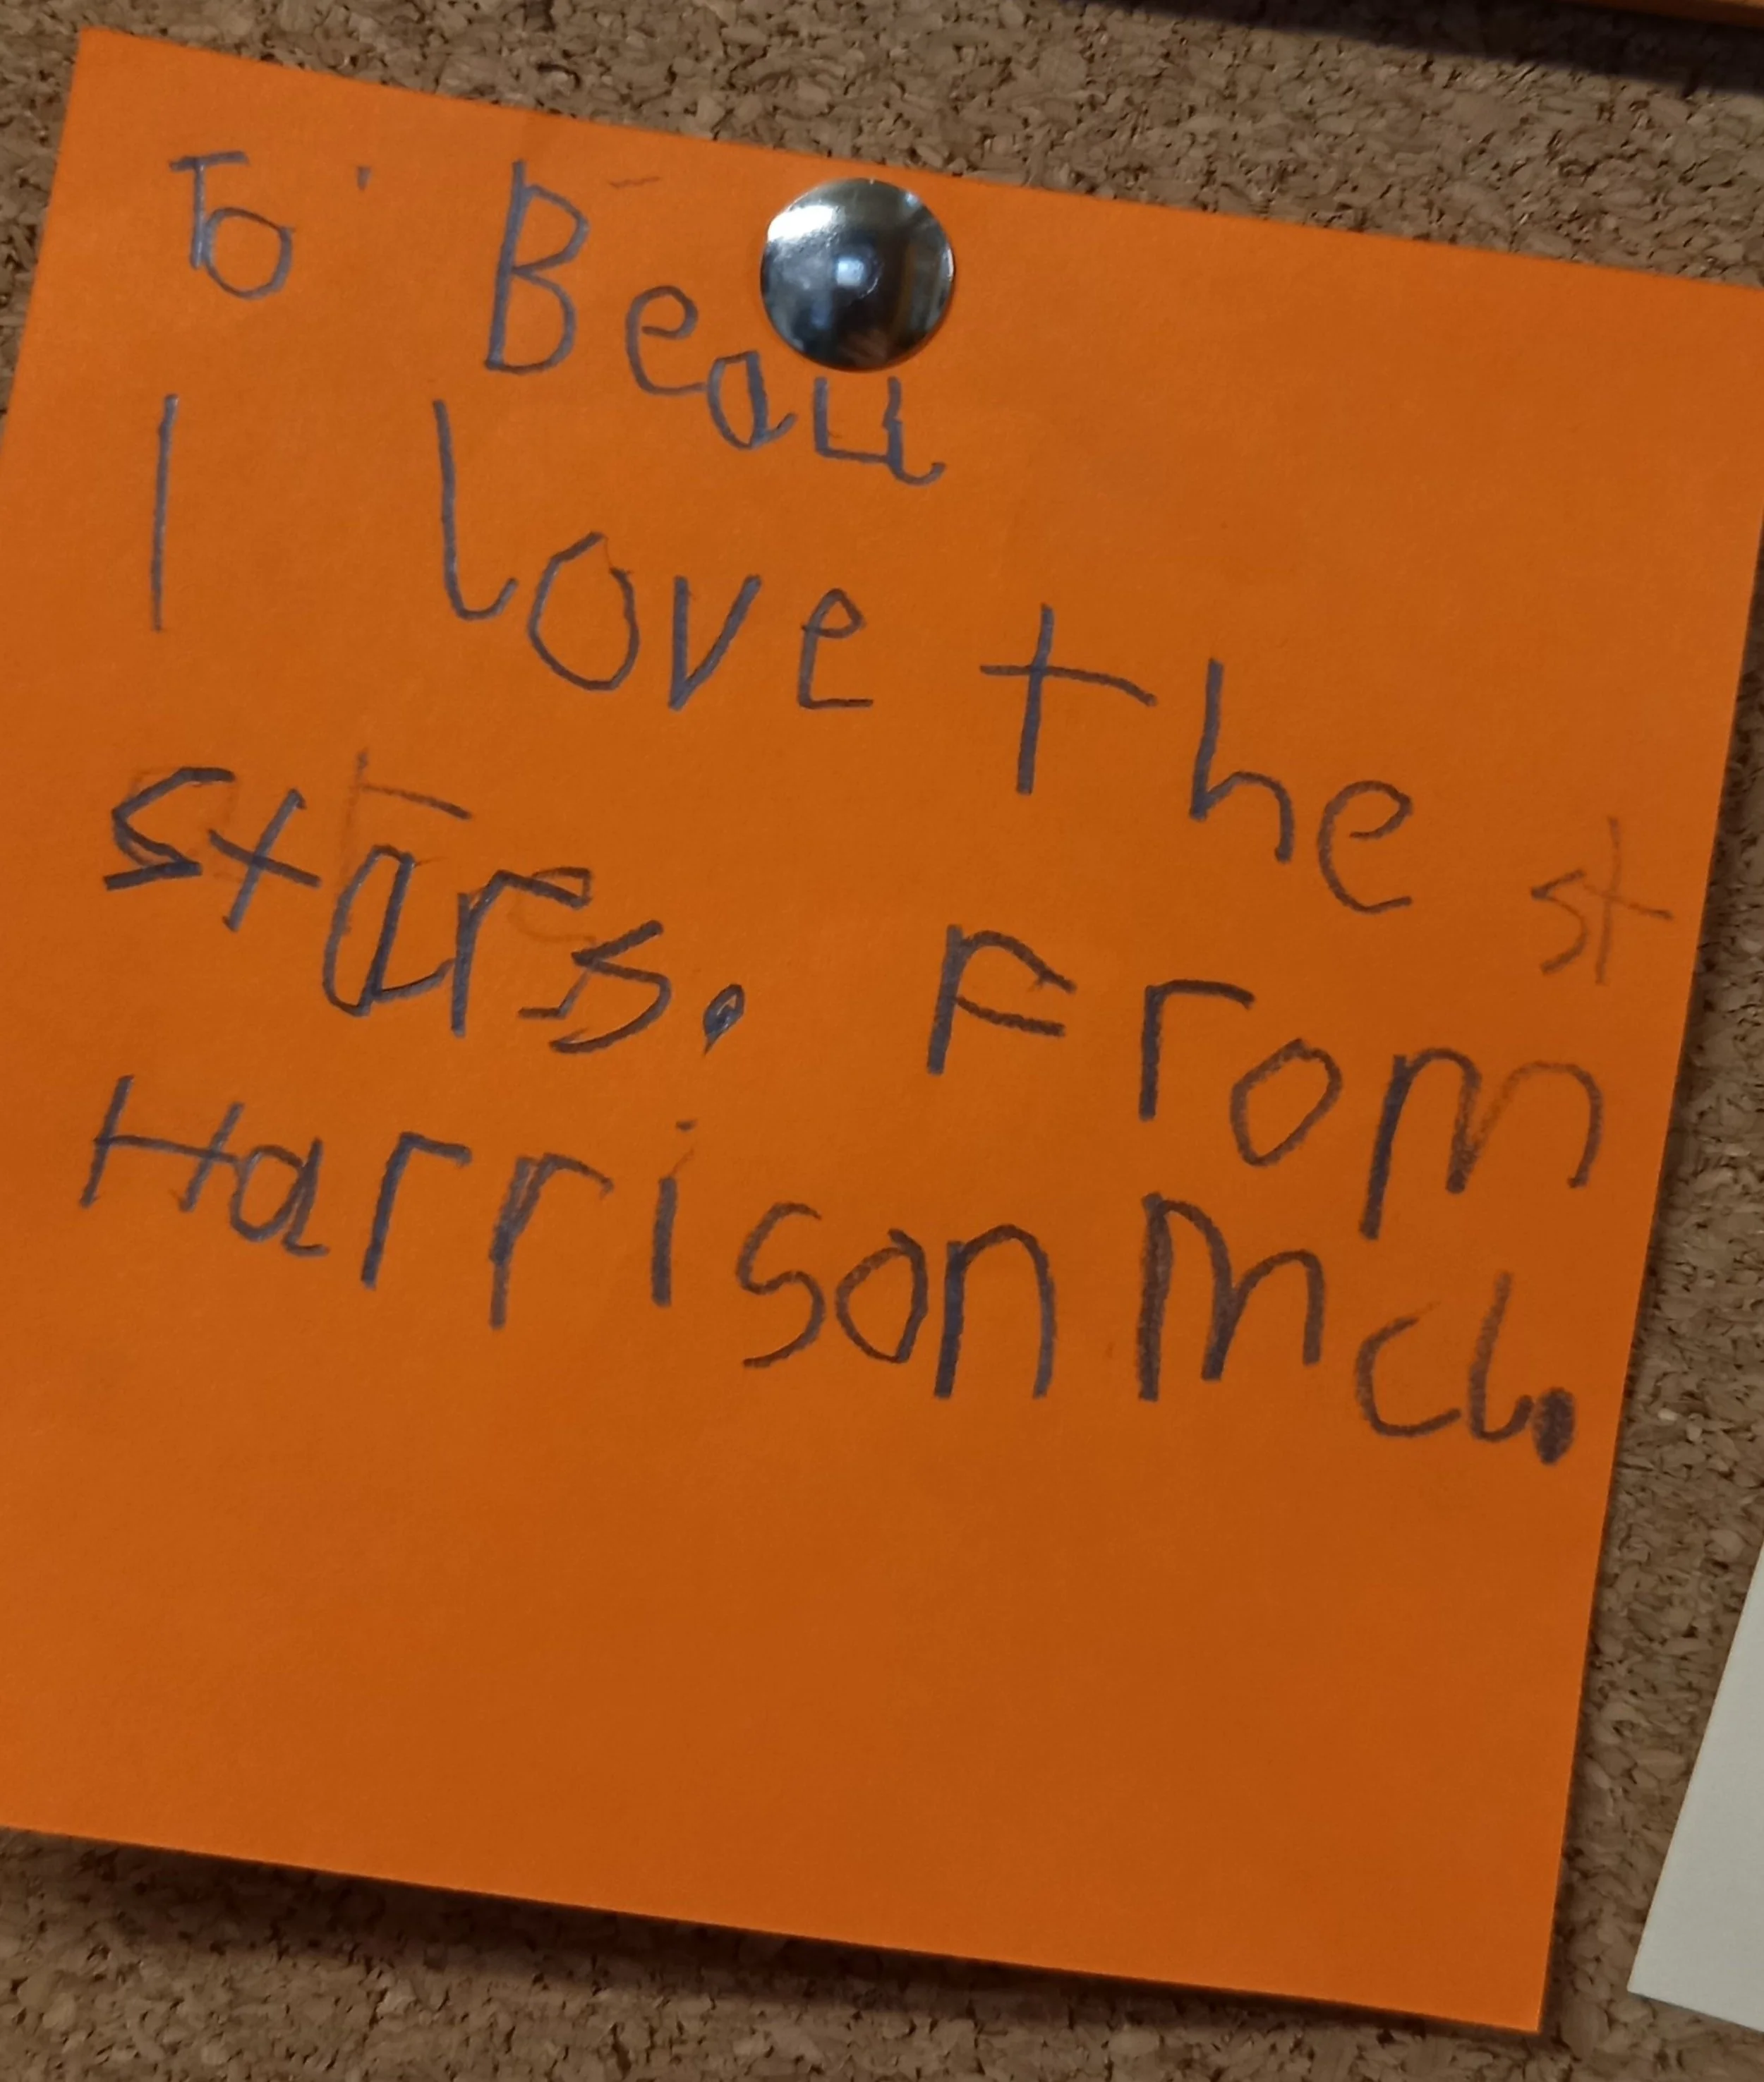 To Beau
I love the st
stars. From
Harrison Mcl.